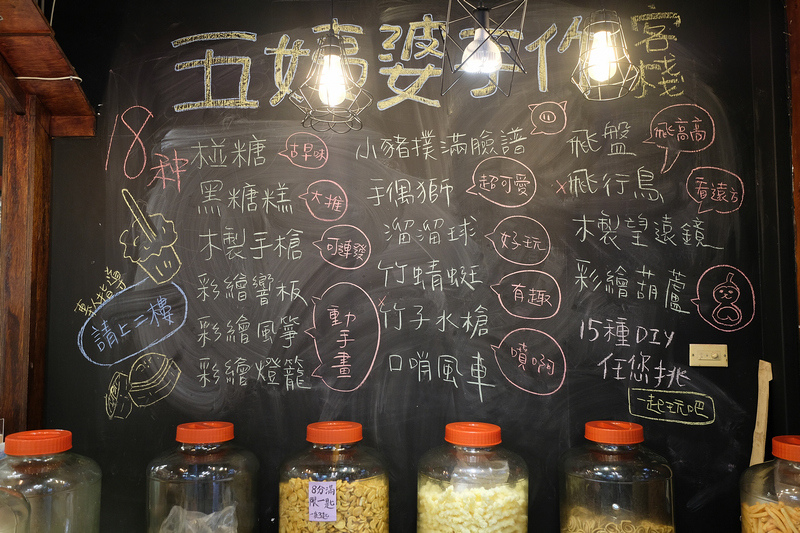 五姨婆手作客棧
18種
椪糖 古早味
黑糖糕 大推
木製手槍 可連發
彩繪響板
彩繪風箏
彩繪燈籠
動手畫
小豬撲滿臉譜
手偶獅 超可愛
溜溜球 好玩
竹蜻蜓 有趣
竹子水槍
口哨風車 噴啊
飛盤 飛高高
飛行鳥 看遠方
木製望遠鏡
彩繪葫蘆
15種DIY
任您挑
一起玩吧
請上二樓
8分滿
限一匙